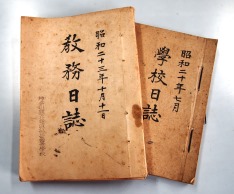 昭和二十三年十月十一日
教務日誌
昭和二十年七月
學校日誌